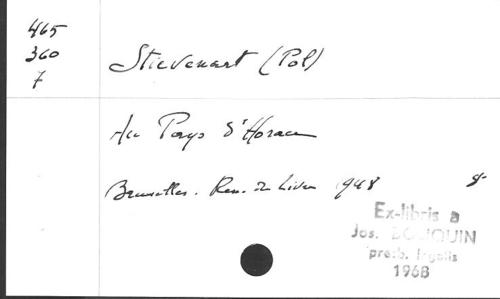 465
360
7
Stievenart (Pol)
Au Pays d'Horace
Bruxelles. Ren. du Livre 1948 8°
Ex-libris a
Jos. BOUQUIN
presb.
1968